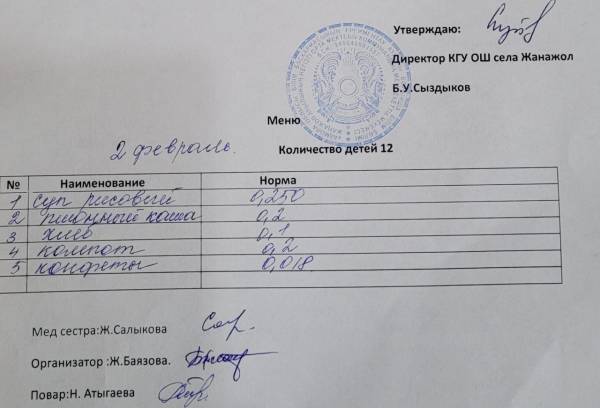 Утверждаю:
Директор КГУ ОШ села Жанажол
Б.У.Сыздыков
Меню
2 февраль.
Количество детей 12
№ Наименование Норма
1 суп рисовый 0,250
2 пшонный каша 0,2
3 хлеб 0,1
4 компот 0,2
5 конфеты 0,018
Мед сестра:Ж.Салыкова
Организатор :Ж.Баязова.
Повар:Н. Атыгаева